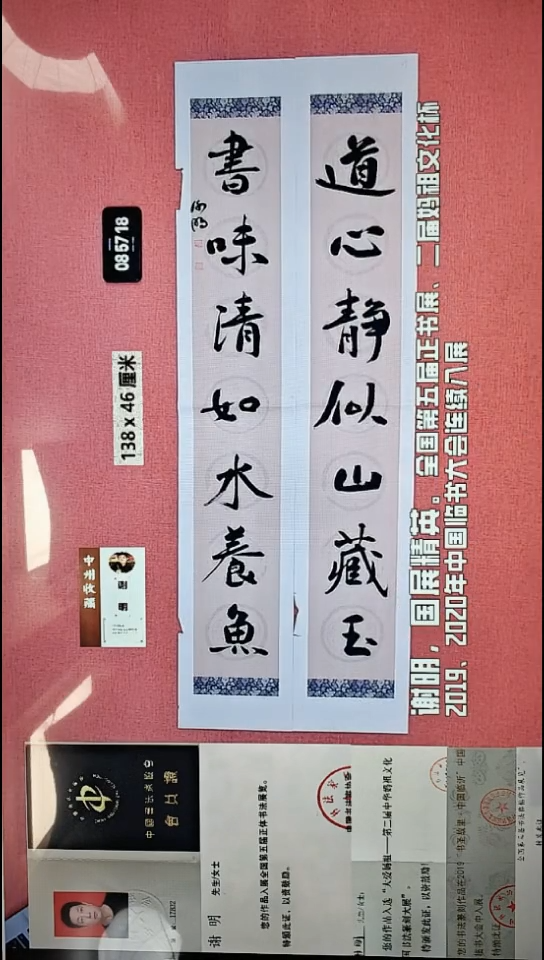 道心静似山藏玉
書味清如水養魚
谢明
085718
138 x 46 厘米
谢明，国展精英。全国第五届正书展、二届妈祖文化杯
2019、2020年中国临书大会连续入展
会員證
谢 明 先生/女士
您的作品入展全国第五届正体书法展览。
特颁此证，以资鼓励。
您的作品入选“大爱妈祖——第二届中华妈祖文化
国书法篆刻大展”。
特颁发此证，以资鼓励！
您的书法篆刻作品在2019“书圣故里·中国临沂”中国
临书大会中入展。
特颁此证